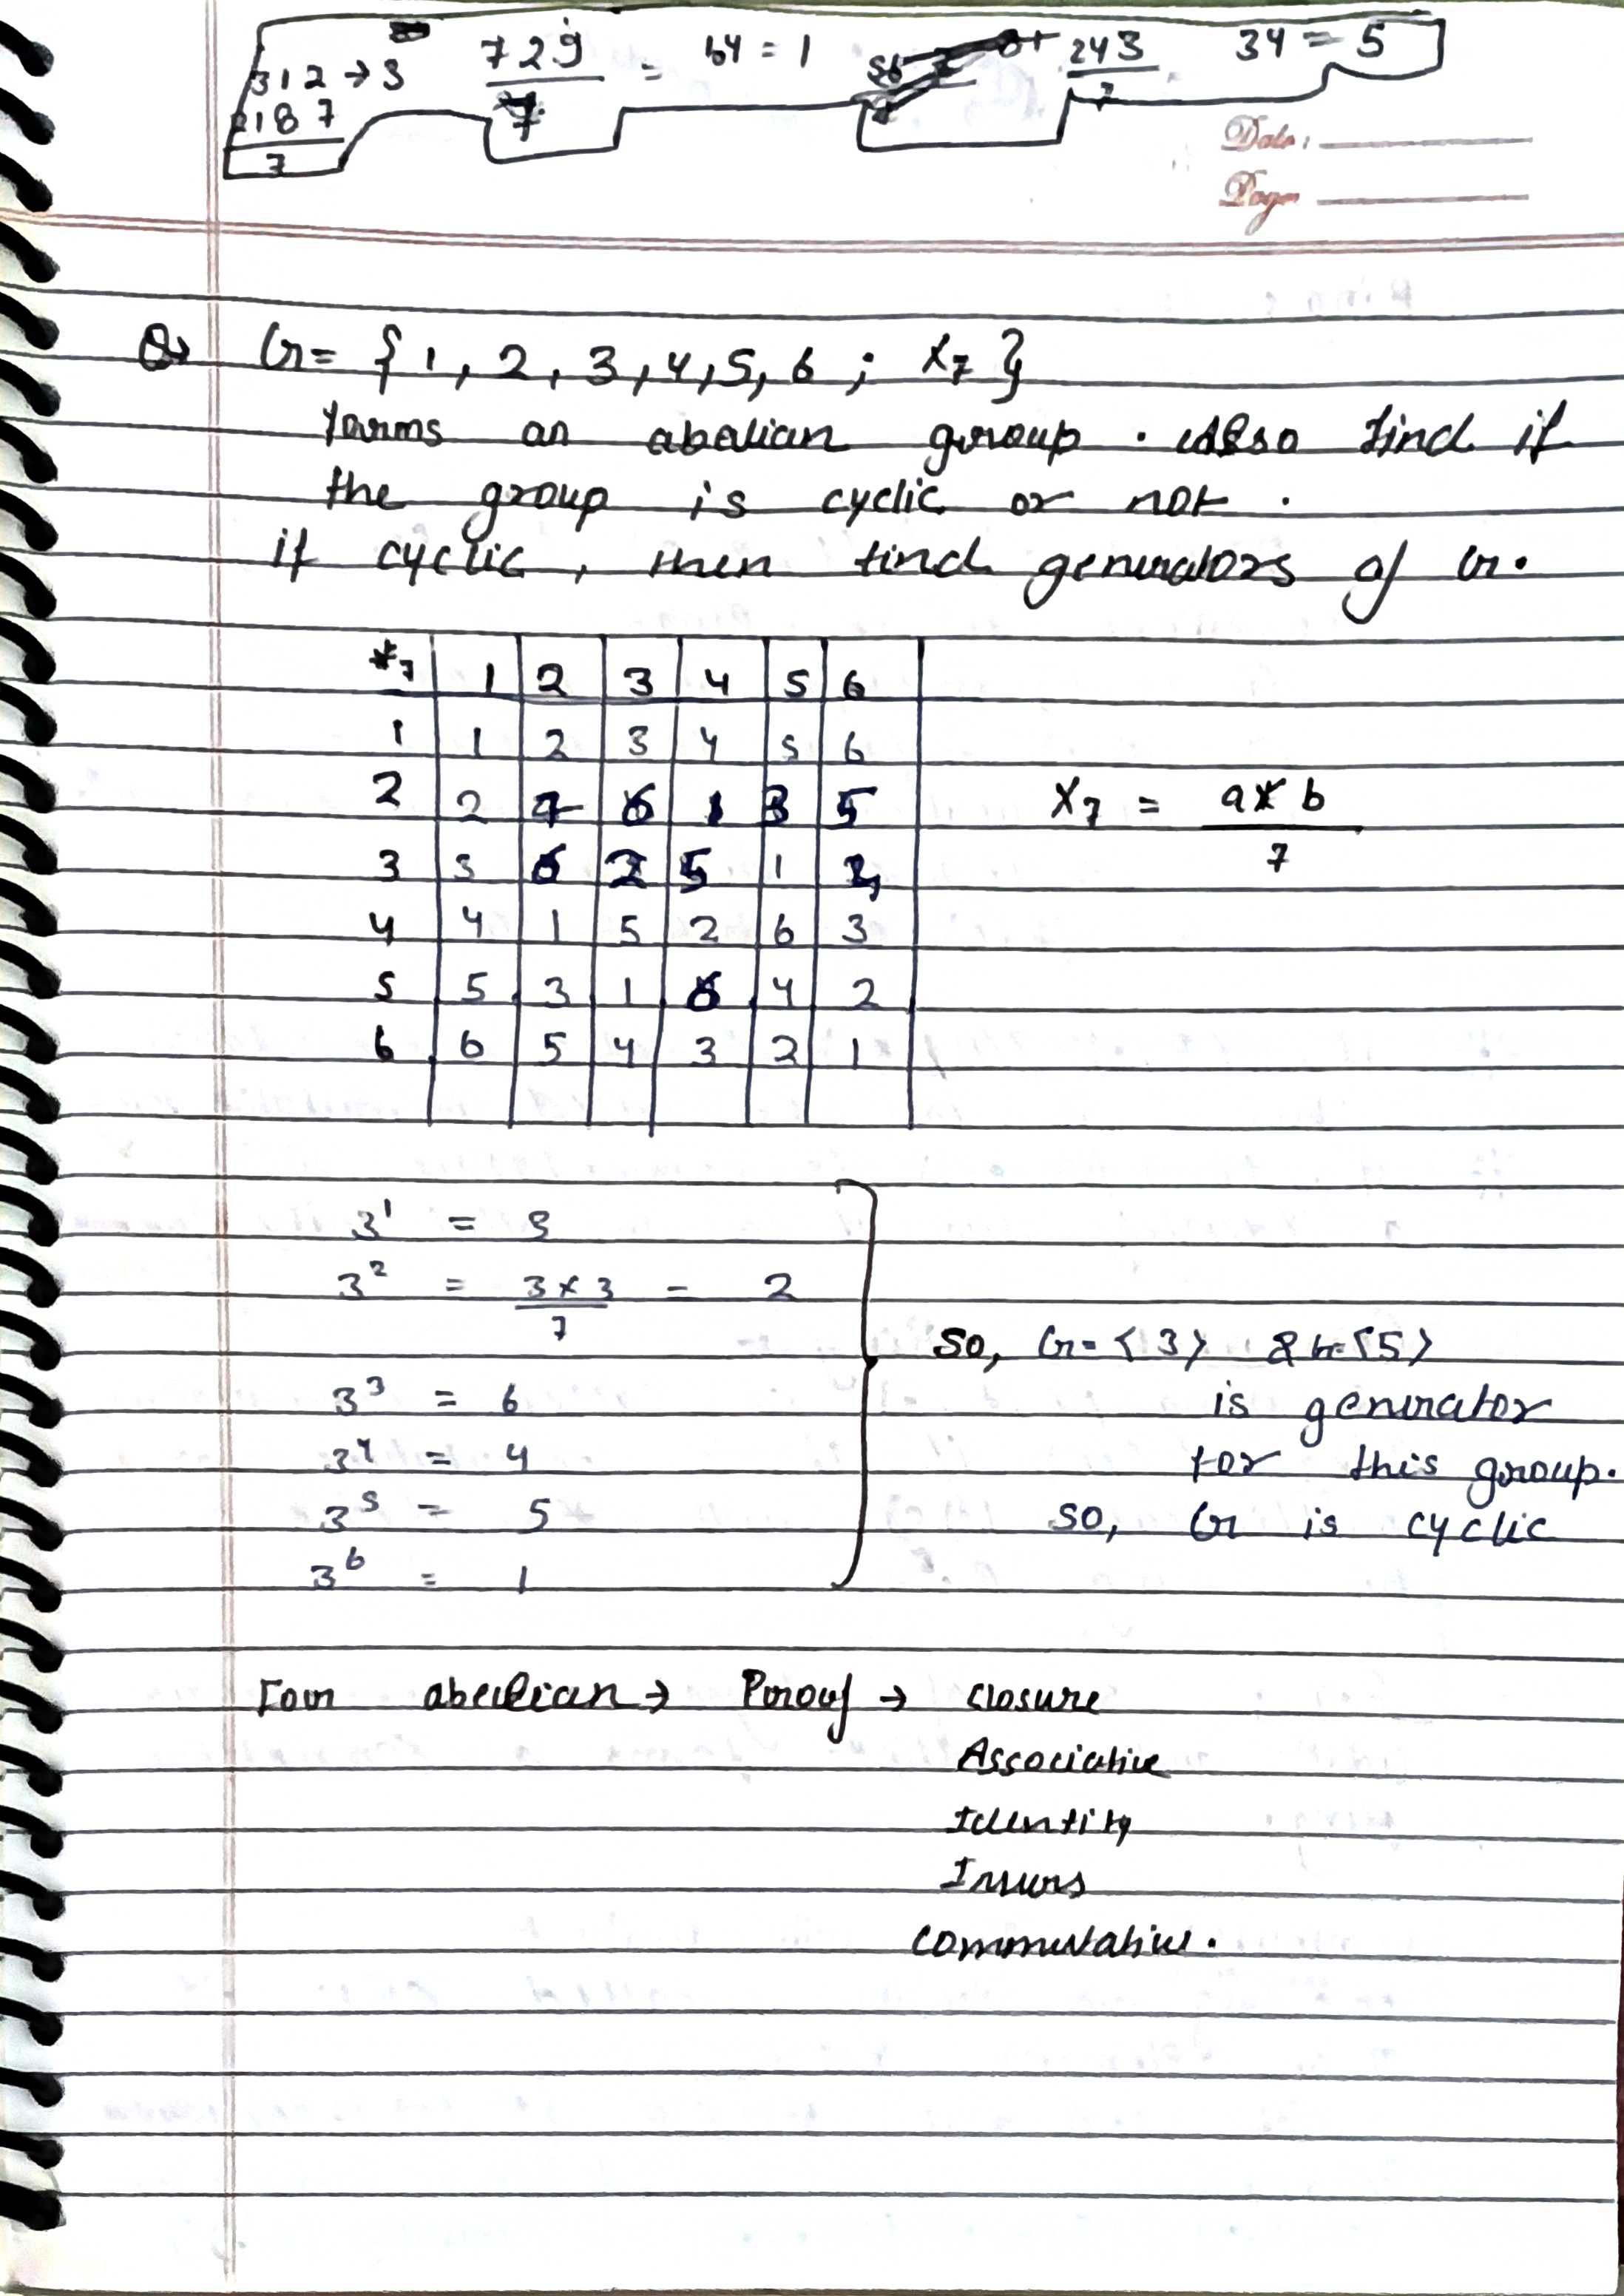 312 → 3   729/7 = 64 = 1   243/7   34 = 5
2187/7
Date:
Page
Q→ G = { 1, 2, 3, 4, 5, 6 ; X7 }
forms an abelian group . Also find if
the group is cyclic or not .
if cyclic , then find generators of G.
*7 1 2 3 4 5 6
1 1 2 3 4 5 6
2 2 4 6 1 3 5
3 3 6 2 5 1
4 4 1 5 2 6 3
5 5 3 1 6 4 2
6 6 5 4 3 2 1
X7 = a * b / 7
3¹ = 3
3² = 3 × 3 / 7 = 2
3³ = 6
3⁴ = 4
3⁵ = 5
3⁶ = 1
So, G = <3> & G = <5>
is generator
for this group.
so, G is cyclic
For abelian → Proof → closure
Associative
Identity
Invers
Commutative .